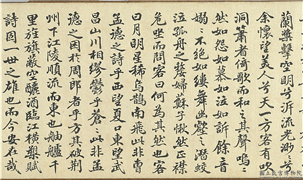 蘭槳擊空明兮泝流光渺〻兮
余懷望美人兮天一方客有吹
洞簫者倚歌而和之其聲嗚〻
然如怨如慕如泣如訴餘音
嫋〻不絕如縷舞幽壑之潛蛟
泣孤舟之嫠婦蘇子愀然正襟
危坐而問客曰何為其然也客
曰月明星稀烏鵲南飛此非曹
孟德之詩乎西望夏口東望武
昌山川相繆鬱乎蒼〻此非孟
德之困於周郎者乎方其破荊
州下江陵順流而東也舳艫千
里旌旗蔽空釃酒臨江橫槊賦
詩固一世之雄也而今安在哉
國立故宮博物院